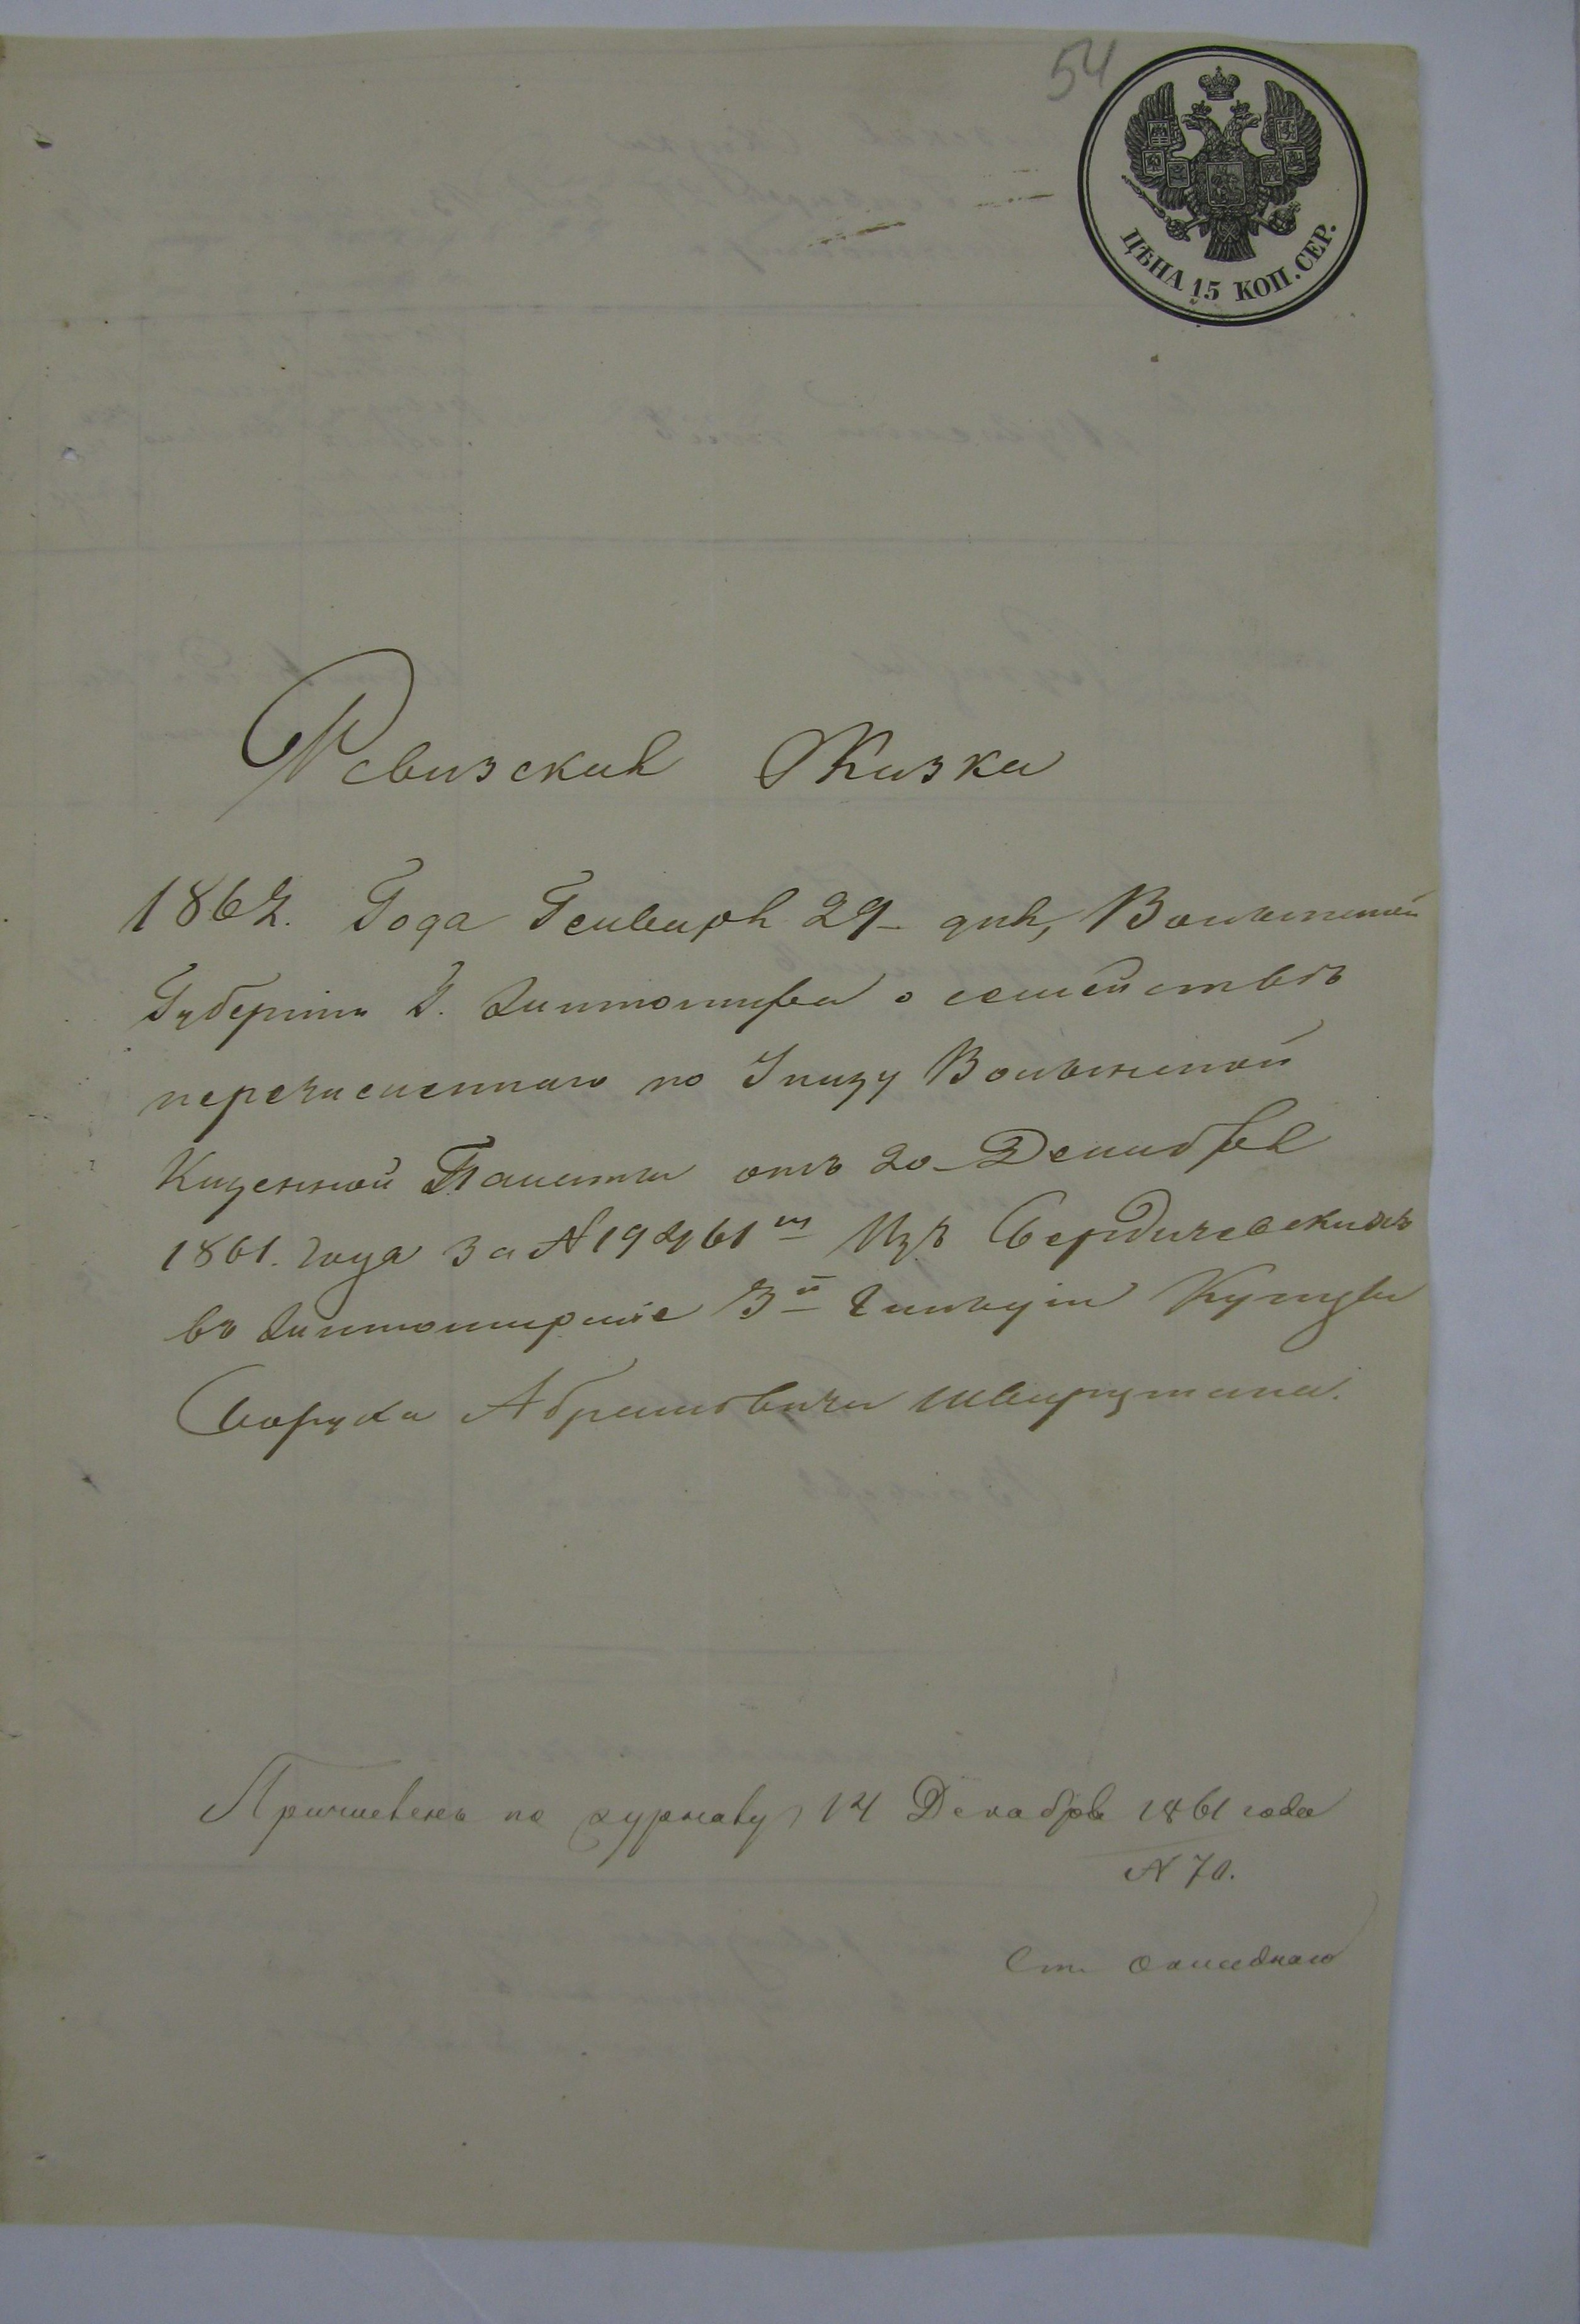 54
ЦѢНА 15 КОП. СЕР.
Ревизская Сказка
1862. Года Генваря 29 дня, Волынской
Губернiи Г. Житомира о семействѣ
перечисленнаго по Указу Волынской
Казенной Палаты отъ 20 Декабря
1861. года за N 19461м Изъ Бердичевскихъ
въ Житомирскiе 3й Гильдiи Купцы
Боруха Абрамовича
Причисленъ по журналу 14 Декабря 1861 года
N 70.